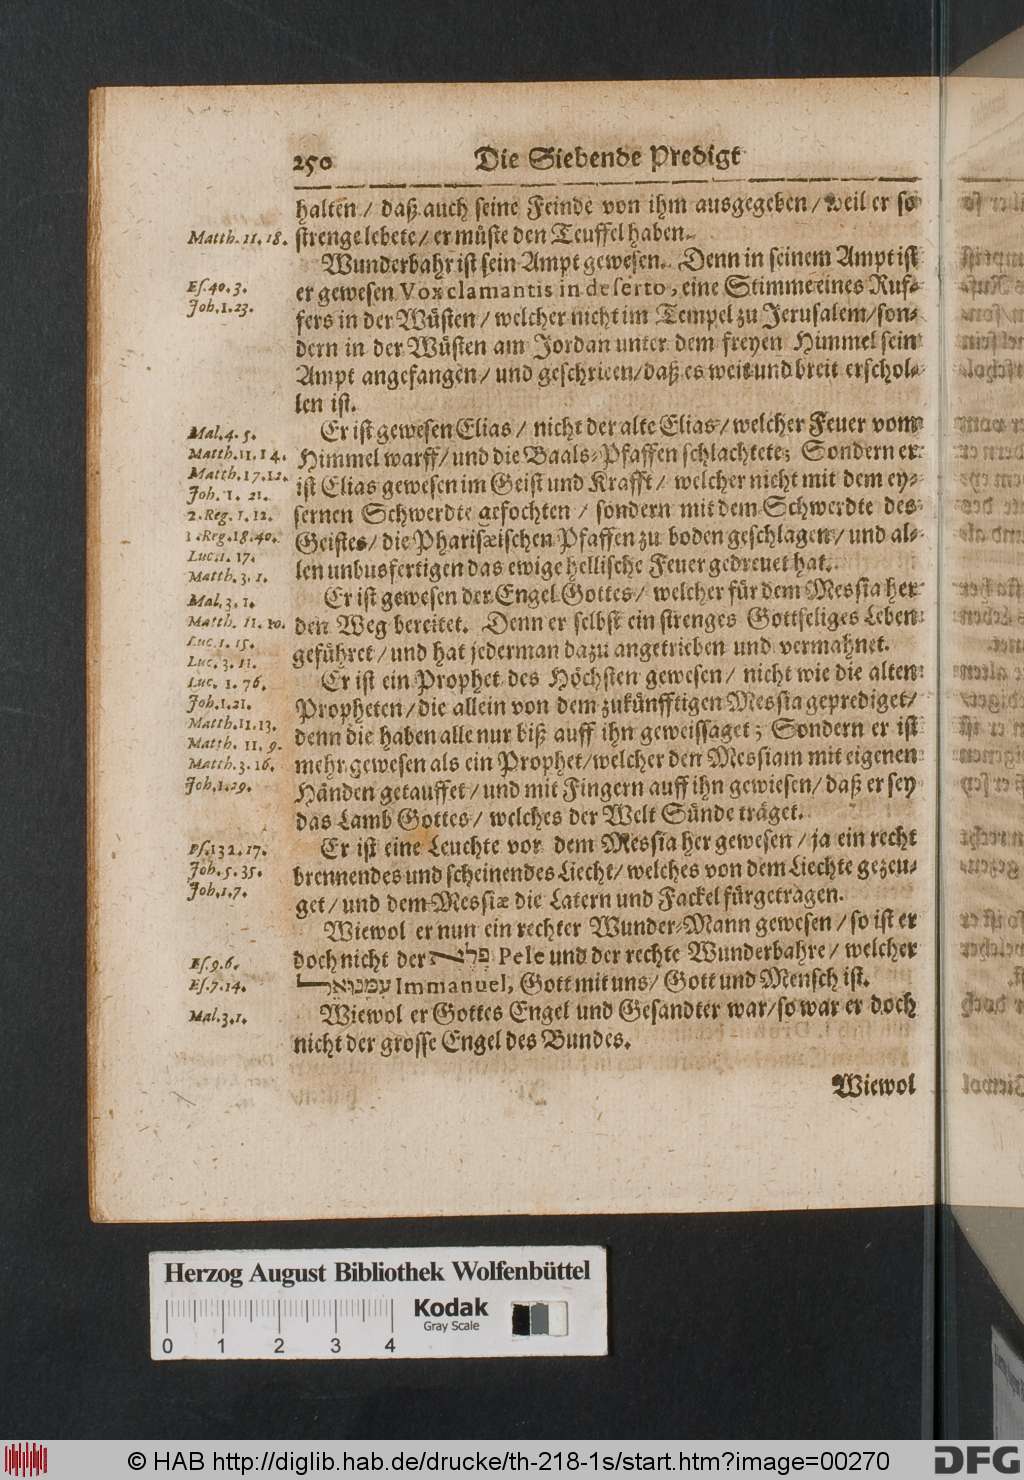 250 Die Siebende Predigt
halten / daß auch seine Feinde von ihm ausgegeben / weil er so
strenge lebete / er müste den Teuffel haben.
Wunderbahr ist sein Ampt gewesen. Denn in seinem Ampt ist
er gewesen Vox clamantis in deserto, eine Stimme eines Ruf-
fers in der Wüsten / welcher nicht im Tempel zu Jerusalem / son-
dern in der Wüsten am Jordan unter dem freyen Himmel sein
Ampt angefangen / und geschrieen / daß es weit und breit erschol-
len ist.
Er ist gewesen Elias / nicht der alte Elias / welcher Feuer vom
Himmel warff / und die Baals-Pfaffen schlachtete; Sondern er
ist Elias gewesen im Geist und Krafft / welcher nicht mit dem ey-
sernen Schwerdte gefochten / sondern mit dem Schwerdte des
Geistes / die Pharisæischen Pfaffen zu boden geschlagen / und al-
len unbusfertigen das ewige hellische Feuer gedreuet hat.
Er ist gewesen der Engel Gottes / welcher für dem Messia her
den Weg bereitet. Denn er selbst ein strenges Gottseliges Leben
geführet / und hat jederman dazu angetrieben und vermahnet.
Er ist ein Prophet des Höchsten gewesen / nicht wie die alten
Propheten / die allein von dem zukünfftigen Messia geprediget /
denn die haben alle nur biß auff ihn geweissaget; Sondern er ist
mehr gewesen als ein Prophet / welcher den Messiam mit eigenen
Händen getauffet / und mit Fingern auff ihn gewiesen / daß er sey
das Lamb Gottes / welches der Welt Sünde träget.
Er ist eine Leuchte vor dem Messia her gewesen / ja ein recht
brennendes und scheinendes Liecht / welches von dem Liechte gezeu-
get / und dem Messiæ die Latern und Fackel fürgetragen.
Wiewol er nun ein rechter Wunder-Mann gewesen / so ist er
doch nicht der פלא Pele und der rechte Wunderbahre / welcher
עמנואל Immanuel, Gott mit uns / Gott und Mensch ist.
Wiewol er Gottes Engel und Gesandter war / so war er doch
nicht der grosse Engel des Bundes.
Wiewol
Matth. 11. 18.
Es. 40. 3.
Joh. 1. 23.
Mal. 4. 5.
Matth. 11. 14.
Matth. 17. 12.
Joh. 1. 21.
2. Reg. 1. 12.
1. Reg. 18. 40.
Luc. 1. 17.
Matth. 3. 1.
Mal. 3. 1.
Matth. 11. 10.
Luc. 1. 15.
Luc. 3. 11.
Luc. 1. 76.
Joh. 1. 21.
Matth. 11. 13.
Matth. 11. 9.
Matth. 3. 16.
Joh. 1. 29.
Ps. 132. 17.
Joh. 5. 35.
Joh. 1. 7.
Es. 9. 6.
Es. 7. 14.
Mal. 3. 1.
Herzog August Bibliothek Wolfenbüttel
Kodak
Gray Scale
0 1 2 3 4
© HAB http://diglib.hab.de/drucke/th-218-1s/start.htm?image=00270
DFG